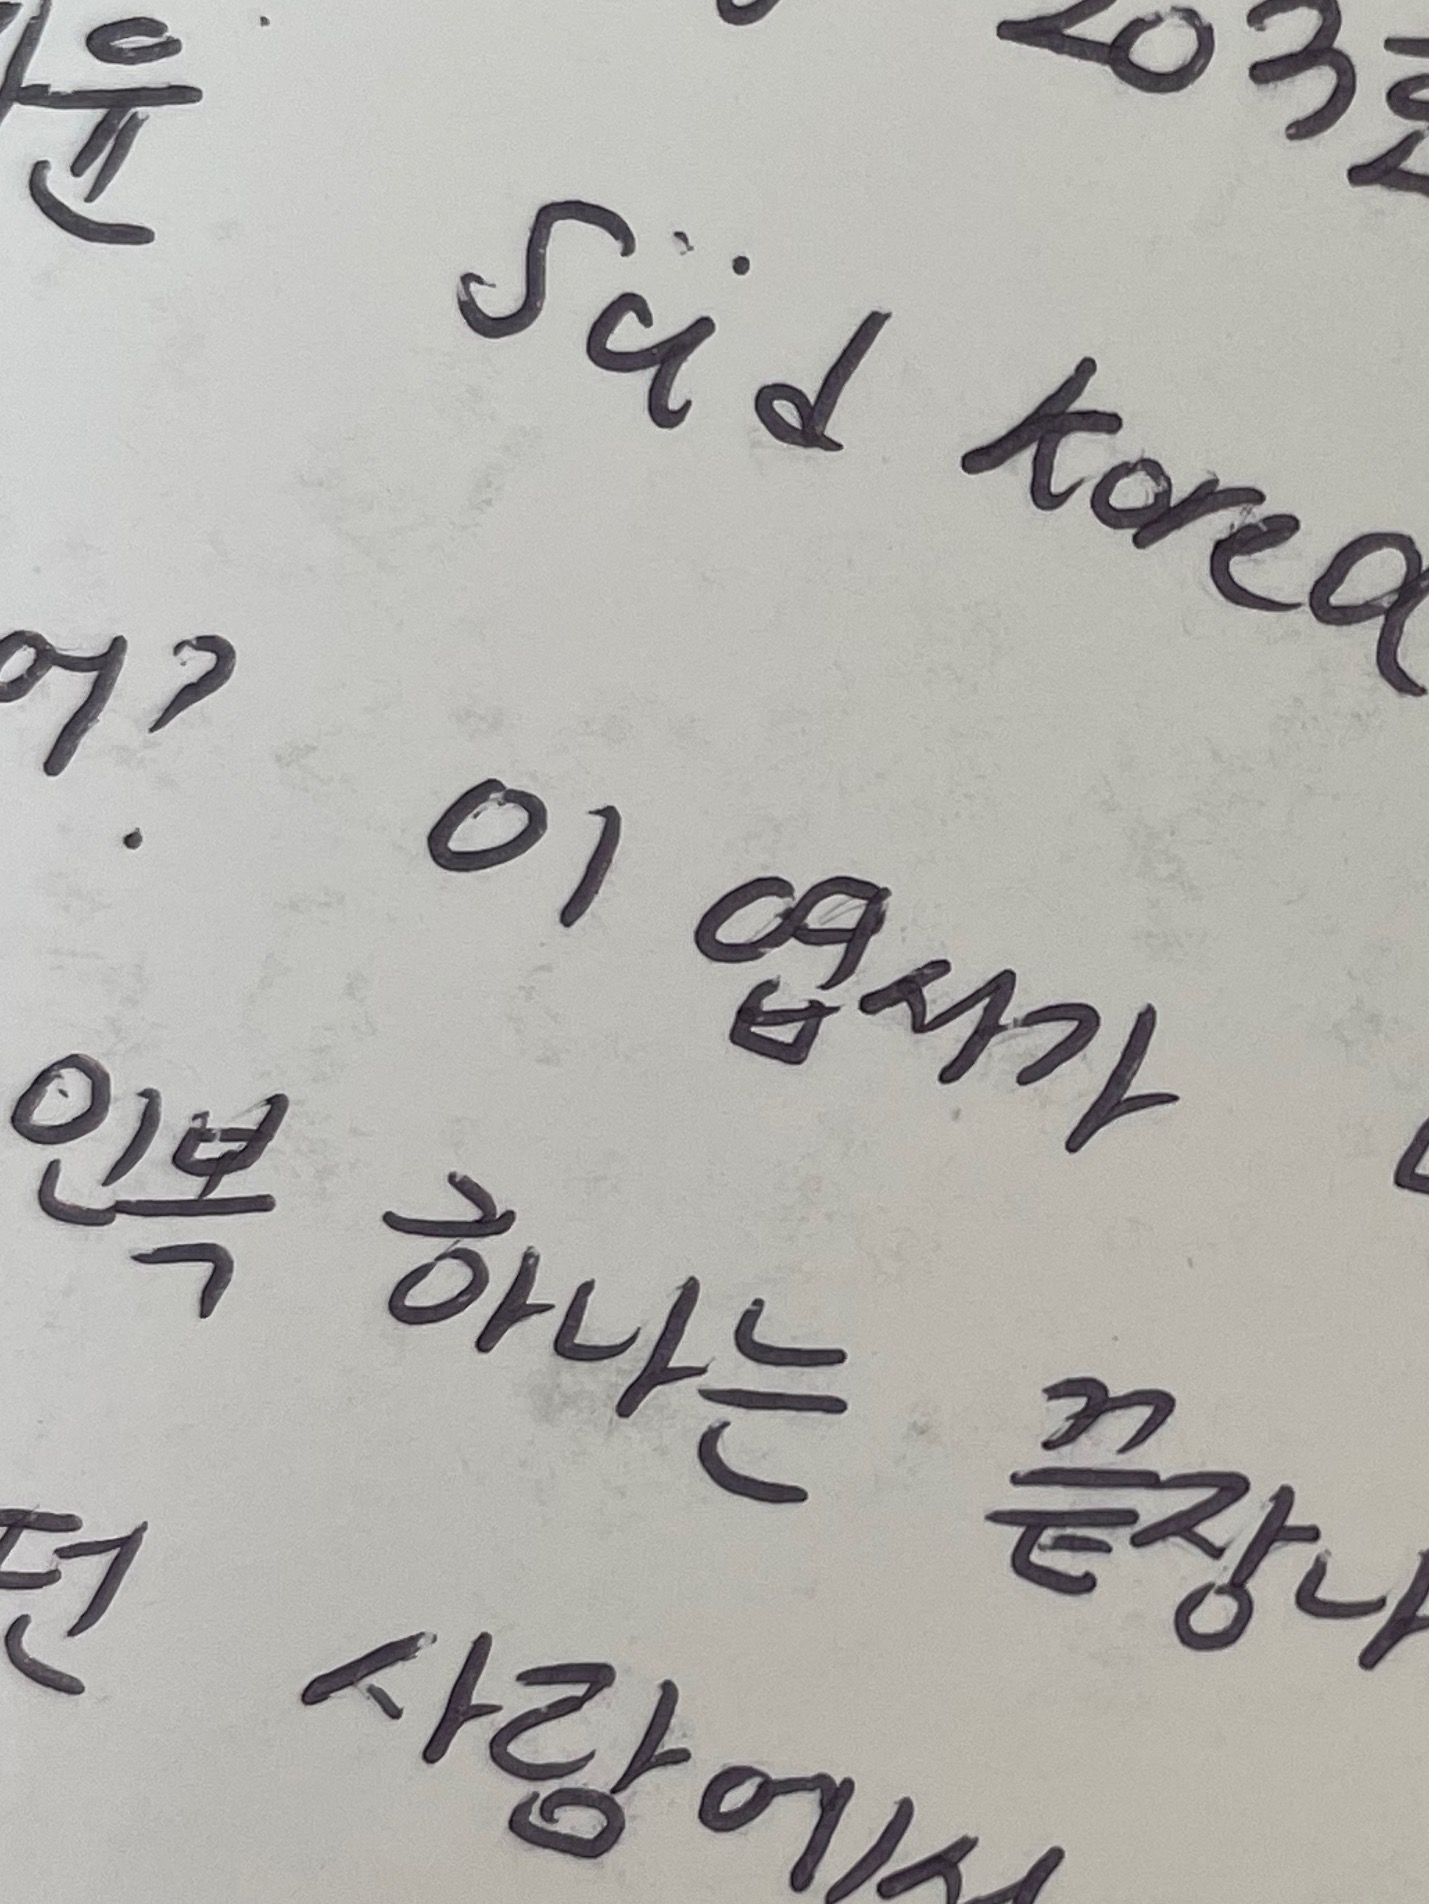 윤 203호
Süd Korea
어? 이 엽서가
인복 하나는 끝장나
던 사랑에서